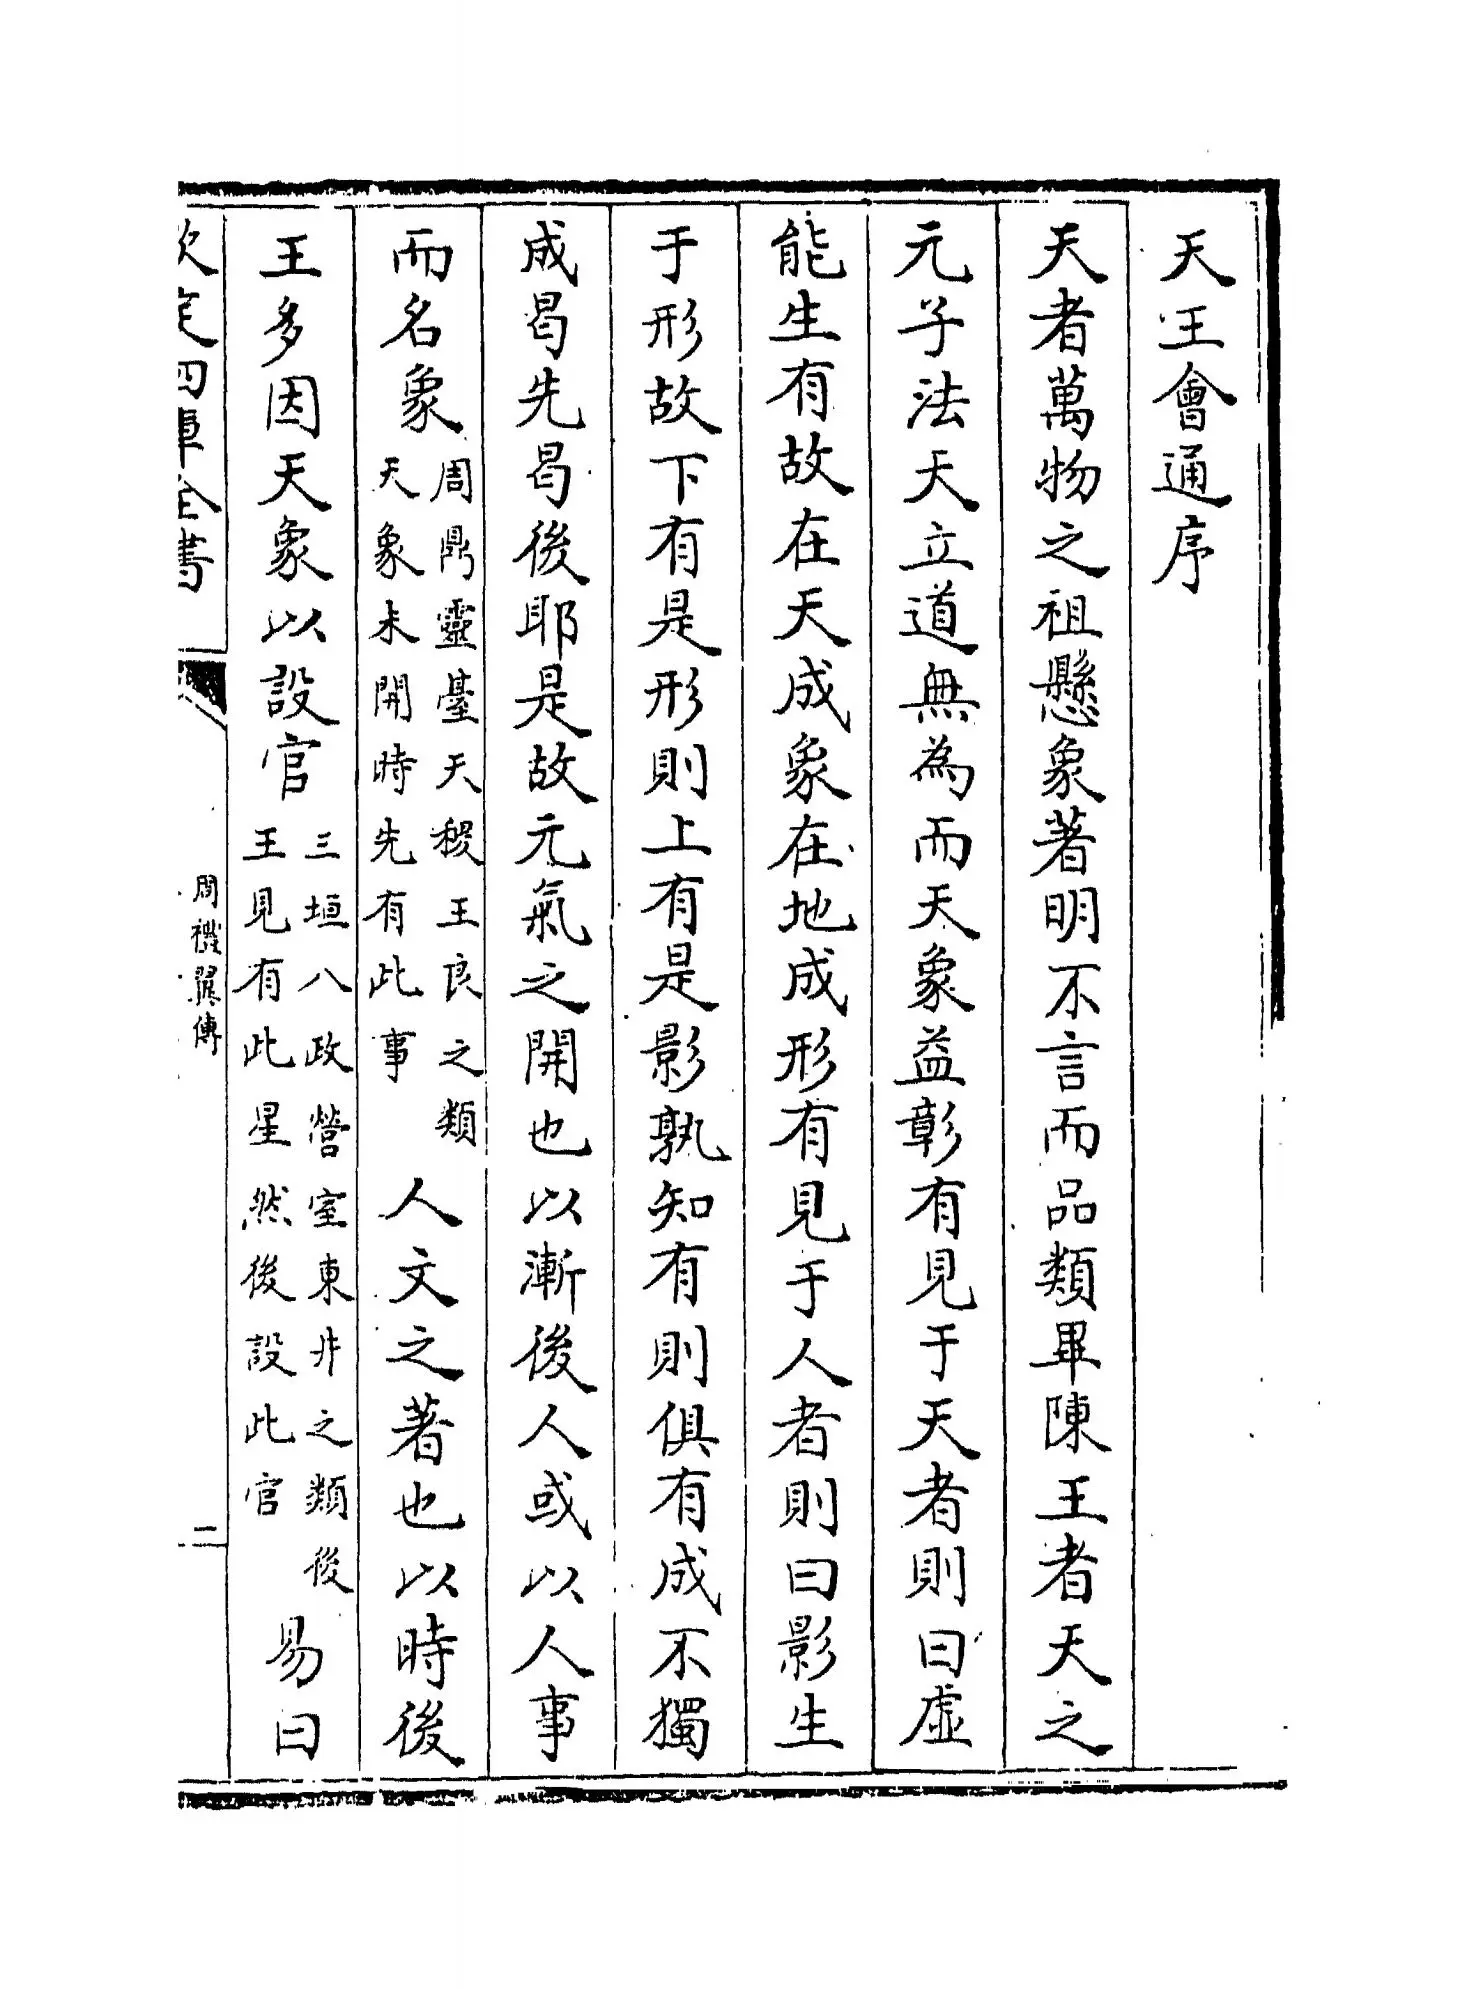 天王會通序
天者萬物之祖懸象著明不言而品類畢陳王者天之
元子法天立道無為而天象益彰有見于天者則曰虛
能生有故在天成象在地成形有見于人者則曰影生
于形故下有是形則上有是影孰知有則俱有成不獨
成曷先曷後耶是故元氣之開也以漸後人或以人事
而名象
周鼎靈臺天稷王良之類
天象未開時先有此事
人文之著也以時後
王多因天象以設官
三垣八政營室東井之類後
王見有此星然後設此官
易曰
欽定四庫全書
周禮翼傳
二